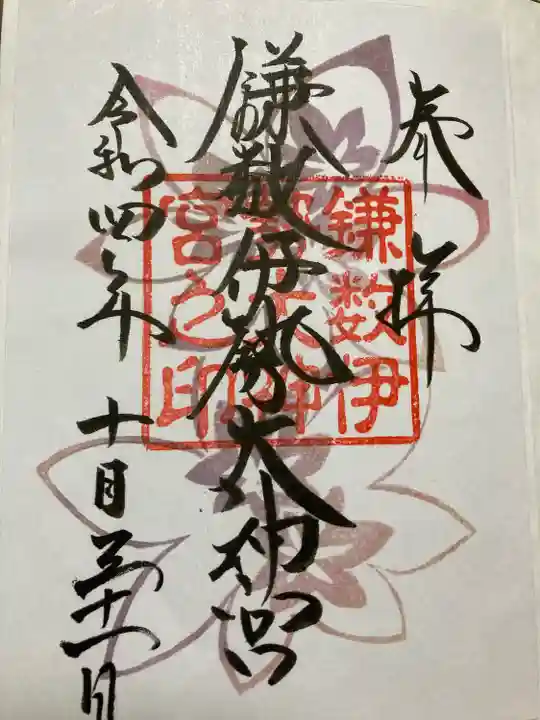 奉拝
鎌数伊勢大神宮
鎌数伊
勢大神
宮之印
令和四年 十月三十一日